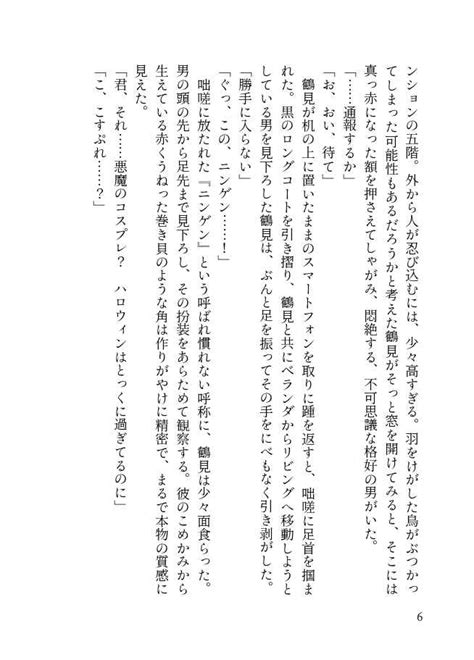 ンションの五階。外から人が忍び込むには、少々高すぎる。羽をけがした鳥がぶつかっ
てしまった可能性もあるだろうかと考えた鶴見がそっと窓を開けてみると、そこには
真っ赤になった額を押さえてしゃがみ、悶絶する、不可思議な格好の男がいた。
「……通報するか」
「お、おい、待て」
鶴見が机の上に置いたままのスマートフォンを取りに踵を返すと、咄嗟に足首を掴ま
れた。黒のロングコートを引き摺り、鶴見と共にベランダからリビングへ移動しようと
している男を見下ろした鶴見は、ぶんと足を振ってその手をにべもなく引き剥がした。
「勝手に入らない」
「ぐっ、この、ニンゲン……！」
咄嗟に放たれた『ニンゲン』という呼ばれ慣れない呼称に、鶴見は少々面食らった。
男の頭の先から足先まで見下ろし、その扮装をあらためて観察する。彼のこめかみから
生えている赤くうねった巻き貝のような角は作りがやけに精密で、まるで本物の質感に
見えた。
「君、それ……悪魔のコスプレ？　ハロウィンはとっくに過ぎてるのに」
「こ、こすぷれ……？」
6